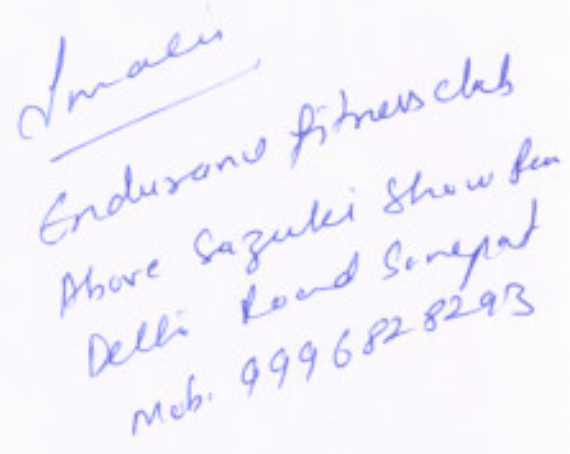 Endurance fitness club
Above Sazuki Show
Delhi Road Sonepat
Mob. 9996828293